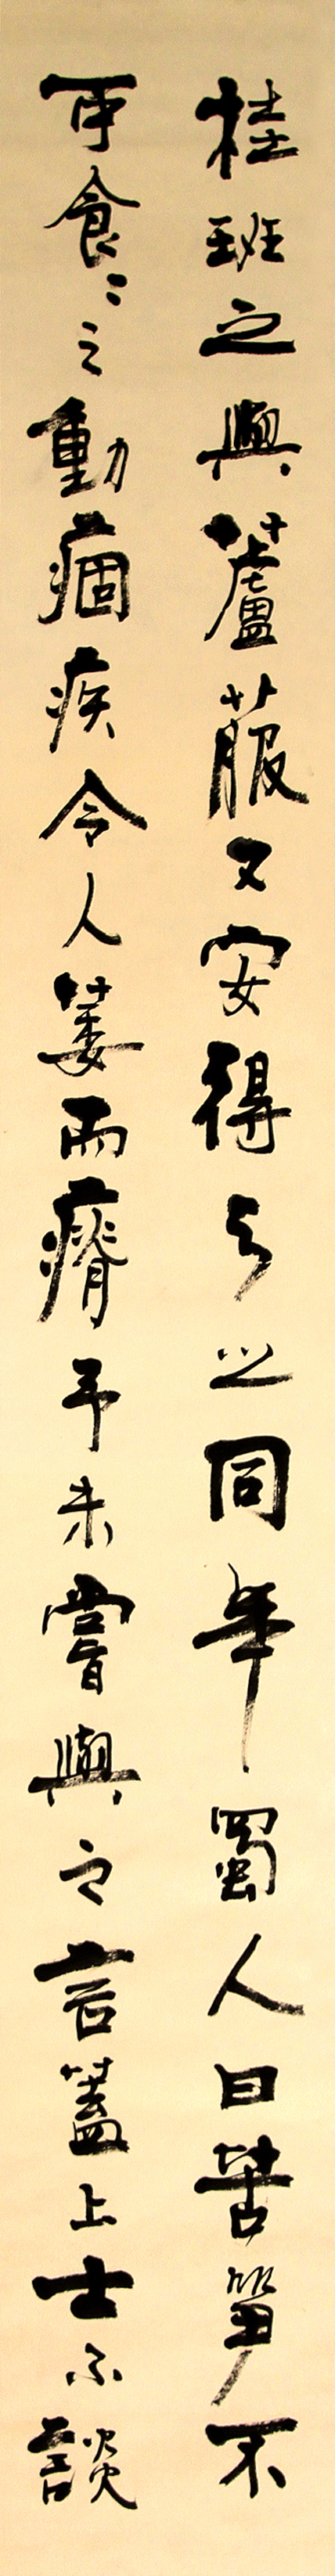 桂班之與蘆菔又安得与之同年蜀人曰苦笋不
可食〻之動痼疾令人萎而瘠予未嘗與之言蓋上士不談